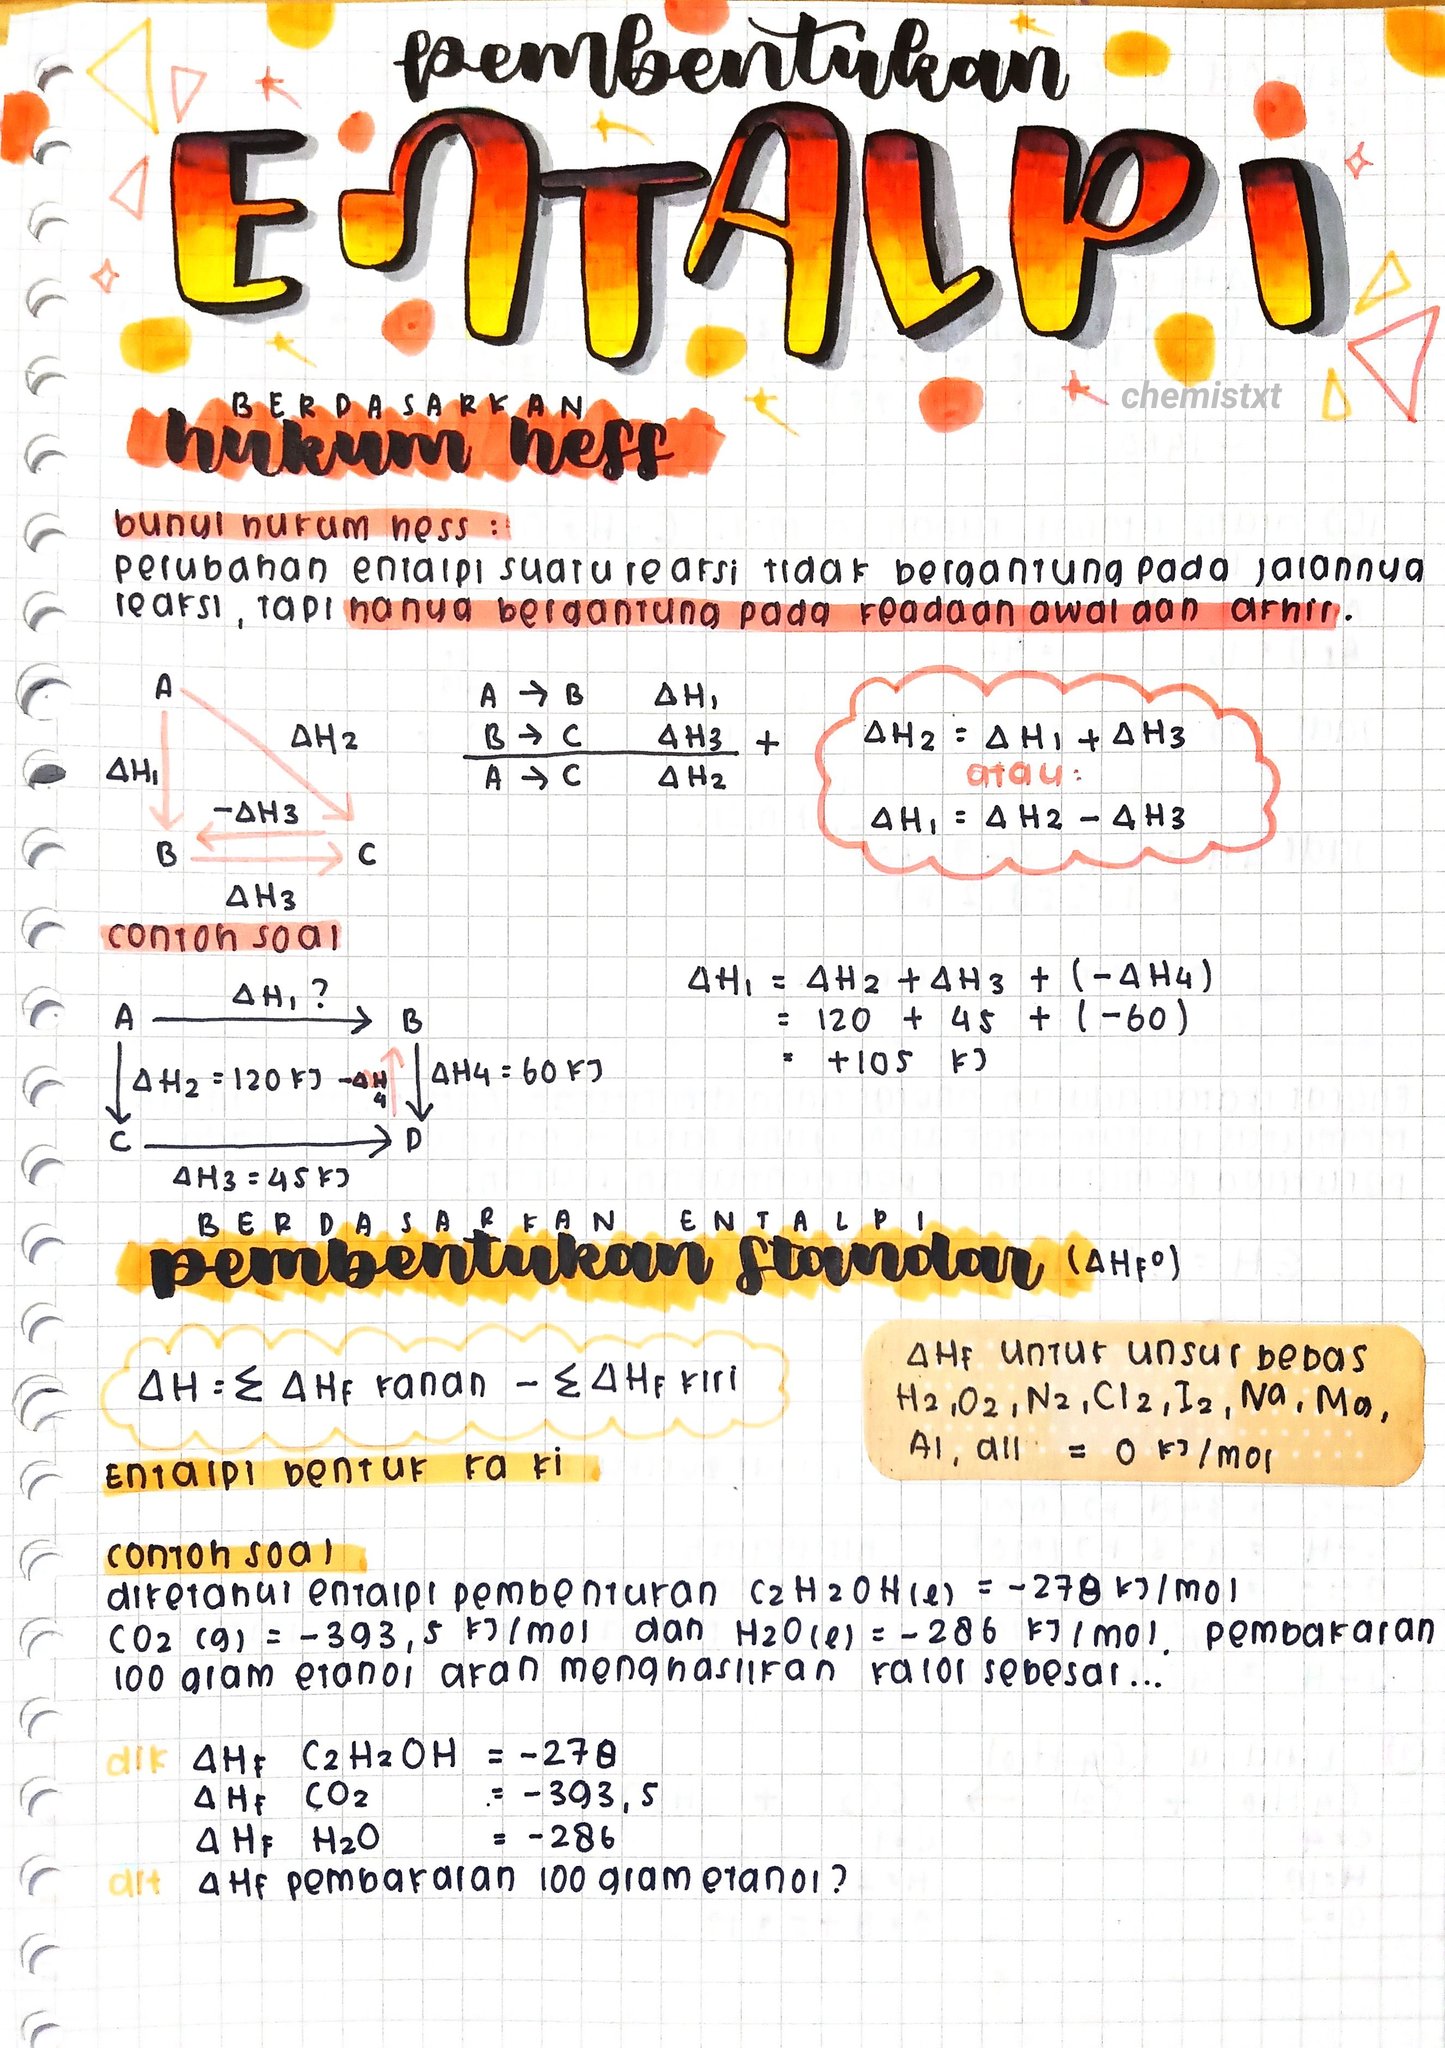 pembentukan
ENTALPI
chemistxt
BERDASARKAN
hukum hess
bunyi hukum hess :
perubahan entalpi suatu reaksi tidak bergantung pada jalannya
reaksi, tapi hanya bergantung pada keadaan awal dan akhir.
A
ΔH1
ΔH2
-ΔH3
B
C
ΔH3
A → B ΔH1
B → C ΔH3 +
A → C ΔH2
ΔH2 = ΔH1 + ΔH3
atau:
ΔH1 = ΔH2 - ΔH3
contoh soal
ΔH1 ?
A → B
ΔH2 = 120 kJ
-ΔH4
ΔH4 = 60 kJ
C → D
ΔH3 = 45 kJ
ΔH1 = ΔH2 + ΔH3 + (-ΔH4)
= 120 + 45 + (-60)
= +105 kJ
BERDASARKAN ENTALPI
pembentukan standar (ΔHf°)
ΔH = Σ ΔHf kanan - Σ ΔHf kiri
ΔHf untuk unsur bebas
H2, O2, N2, Cl2, I2, Na, Ma,
Al, dll = 0 kJ/mol
Entalpi bentuk ka ki
contoh soal
diketahui entalpi pembentukan C2H2OH(l) = -278 kJ/mol
CO2 (g) = -393,5 kJ/mol dan H2O(l) = -286 kJ/mol. pembakaran
100 gram etanol akan menghasilkan kalor sebesar...
dik ΔHf C2H2OH = -278
ΔHf CO2 = -393,5
ΔHf H2O = -286
dit ΔHf pembakaran 100 gram etanol?